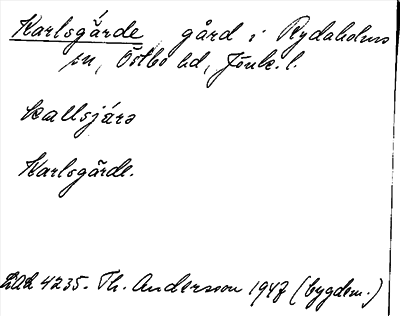 Karlsgärde, gård i Rydaholms
sn, Östbo hd, Jönk. l.
kallsjärə
Karlsgärde.
4235. Th. Andersson 1947 (bygdem.)